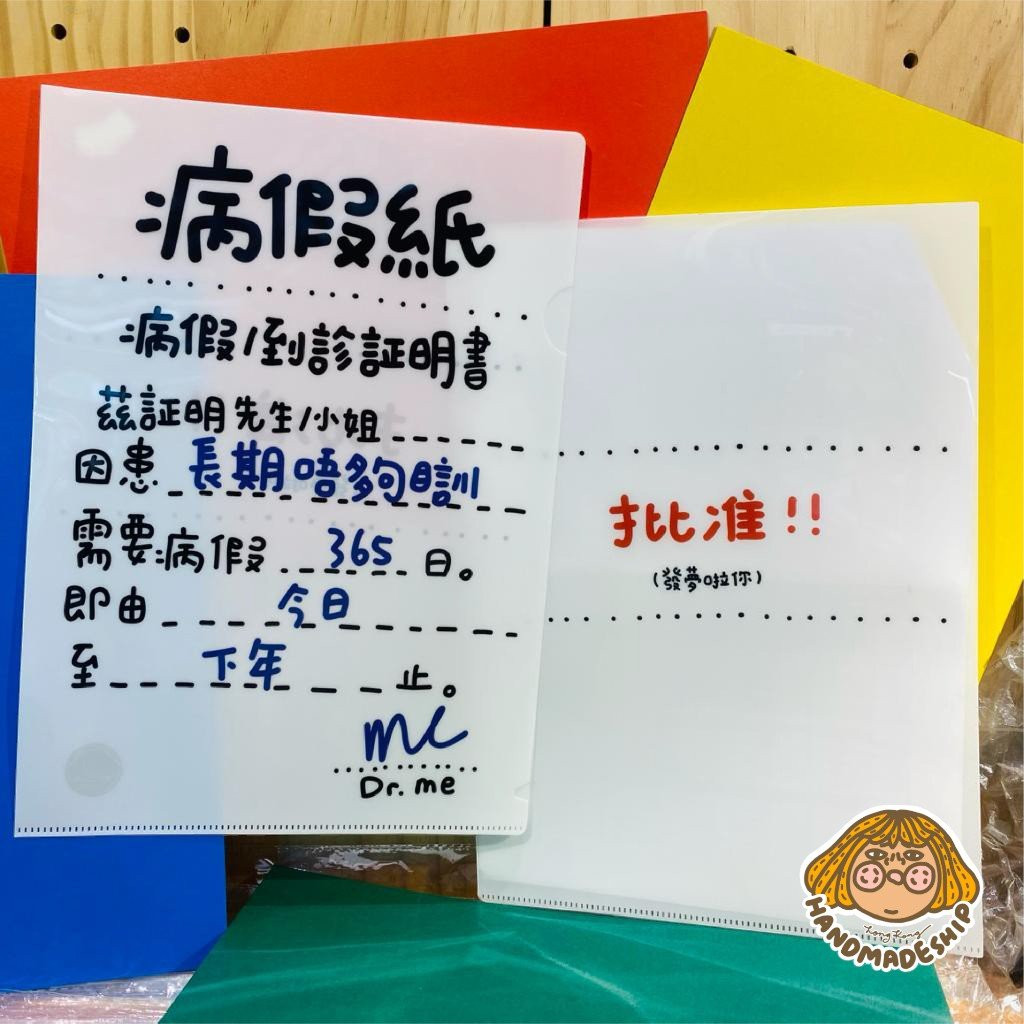 病假紙
病假/到診証明書
茲証明先生/小姐
因患 長期唔夠瞓
需要病假 365 日。
即由 今日
至 下年 止。
mc
Dr. me
批准!!
(發夢啦你)
Hong Kong
HANDMADESHIP